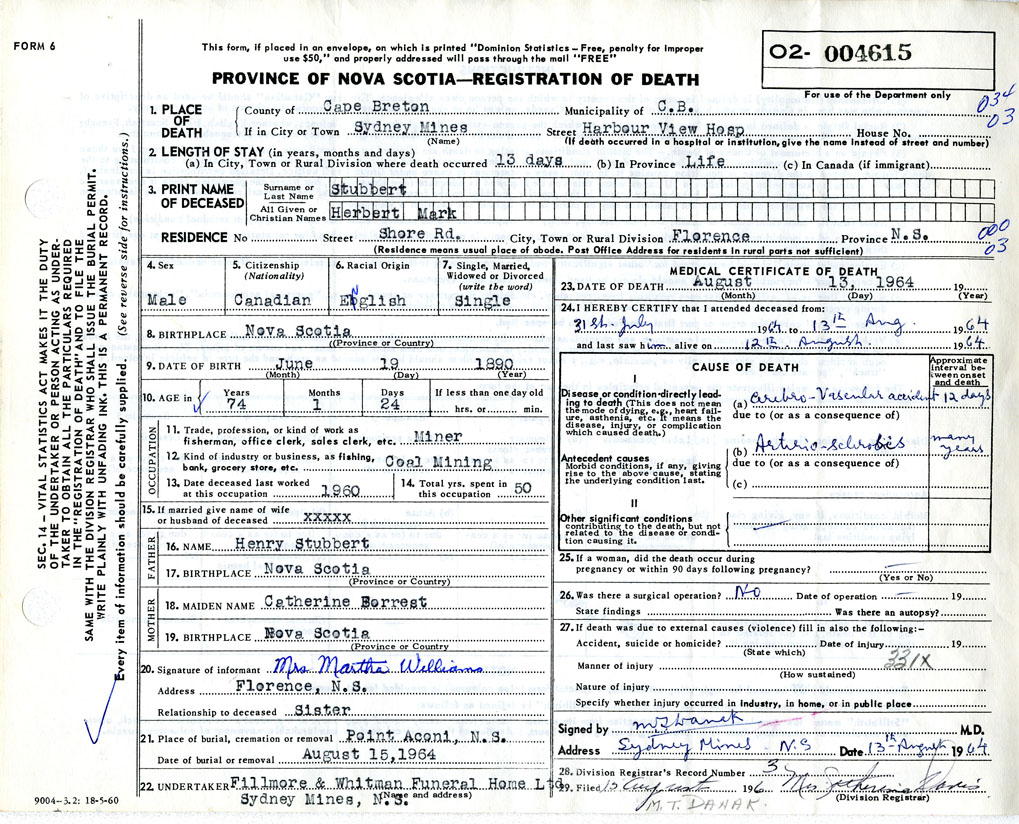 FORM 6
This form, if placed in an envelope, on which is printed "Dominion Statistics – Free, penalty for improper
use $50," and properly addressed will pass through the mail "FREE"
PROVINCE OF NOVA SCOTIA—REGISTRATION OF DEATH
O2- 004615
For use of the Department only
034
03
1. PLACE OF DEATH { County of Cape Breton Municipality of C.B.
If in City or Town Sydney Mines Street Harbour View Hosp House No.
(Name) (If death occurred in a hospital or institution, give the name instead of street and number)
2. LENGTH OF STAY (in years, months and days)
(a) In City, Town or Rural Division where death occurred 13 days (b) In Province Life (c) In Canada (if immigrant)
3. PRINT NAME OF DECEASED
Surname or Last Name Stubbert
All Given or Christian Names Herbert Mark
000
03
RESIDENCE No Street Shore Rd. City, Town or Rural Division Florence Province N.S.
(Residence means usual place of abode. Post Office Address for residents in rural parts not sufficient)
SEC. 14 – VITAL STATISTICS ACT MAKES IT THE DUTY
OF THE UNDERTAKER OR PERSON ACTING AS UNDER-
TAKER TO OBTAIN ALL THE PARTICULARS REQUIRED
IN THE "REGISTRATION OF DEATH" AND TO FILE THE
SAME WITH THE DIVISION REGISTRAR WHO SHALL ISSUE THE BURIAL PERMIT.
WRITE PLAINLY WITH UNFADING INK. THIS IS A PERMANENT RECORD.
Every item of information should be carefully supplied. (See reverse side for instructions.)
4. Sex
Male
5. Citizenship
(Nationality)
Canadian
6. Racial Origin
English
7. Single, Married,
Widowed or Divorced
(write the word)
Single
8. BIRTHPLACE Nova Scotia
(Province or Country)
9. DATE OF BIRTH June 19 1890
(Month) (Day) (Year)
10. AGE in Years 74 Months 1 Days 24 If less than one day old
hrs. or min.
OCCUPATION
11. Trade, profession, or kind of work as
fisherman, office clerk, sales clerk, etc. Miner
12. Kind of industry or business, as fishing,
bank, grocery store, etc. Coal Mining
13. Date deceased last worked
at this occupation 1960
14. Total yrs. spent in
this occupation 50
15. If married give name of wife
or husband of deceased xxxxx
FATHER
16. NAME Henry Stubbert
17. BIRTHPLACE Nova Scotia
(Province or Country)
MOTHER
18. MAIDEN NAME Catherine Forrest
19. BIRTHPLACE Nova Scotia
(Province or Country)
20. Signature of informant Mrs Martha Williams
Address Florence, N.S.
Relationship to deceased Sister
21. Place of burial, cremation or removal Point Aconi, N.S.
Date of burial or removal August 15, 1964
22. UNDERTAKER Fillmore & Whitman Funeral Home Ltd.
(Name and address)
Sydney Mines, N.S.
9004–3.2: 18-5-60
MEDICAL CERTIFICATE OF DEATH
23. DATE OF DEATH August 13, 1964 19
(Month) (Day) (Year)
24. I HEREBY CERTIFY that I attended deceased from:
31st. July 1964 to 13th Aug. 1964
and last saw him alive on 12th August 1964.
CAUSE OF DEATH
Approximate
interval be-
tween onset
and death
I
Disease or condition directly lead-
ing to death (This does not mean
the mode of dying, e.g., heart fail-
ure, asthenia, etc. It means the
disease, injury, or complication
which caused death.)
(a) Cerebro-Vascular accident 12 days
due to (or as a consequence of)
(b) Arterio-sclerosis many years
due to (or as a consequence of)
(c)
Antecedent causes
Morbid conditions, if any, giving
rise to the above cause, stating
the underlying condition last.
II
Other significant conditions
contributing to the death, but not
related to the disease or condi-
tion causing it.
25. If a woman, did the death occur during
pregnancy or within 90 days following pregnancy?
(Yes or No)
26. Was there a surgical operation? No Date of operation 19
State findings Was there an autopsy?
27. If death was due to external causes (violence) fill in also the following:–
Accident, suicide or homicide? Date of injury 19
(State which)
331X
Manner of injury
(How sustained)
Nature of injury
Specify whether injury occurred in industry, in home, or in public place
Signed by M.T. Danak M.D.
Address Sydney Mines N.S Date 13th August 1964
28. Division Registrar's Record Number 3
29. Filed 15 August 196 Mrs Davis
(Division Registrar)
M.T. DANAK.